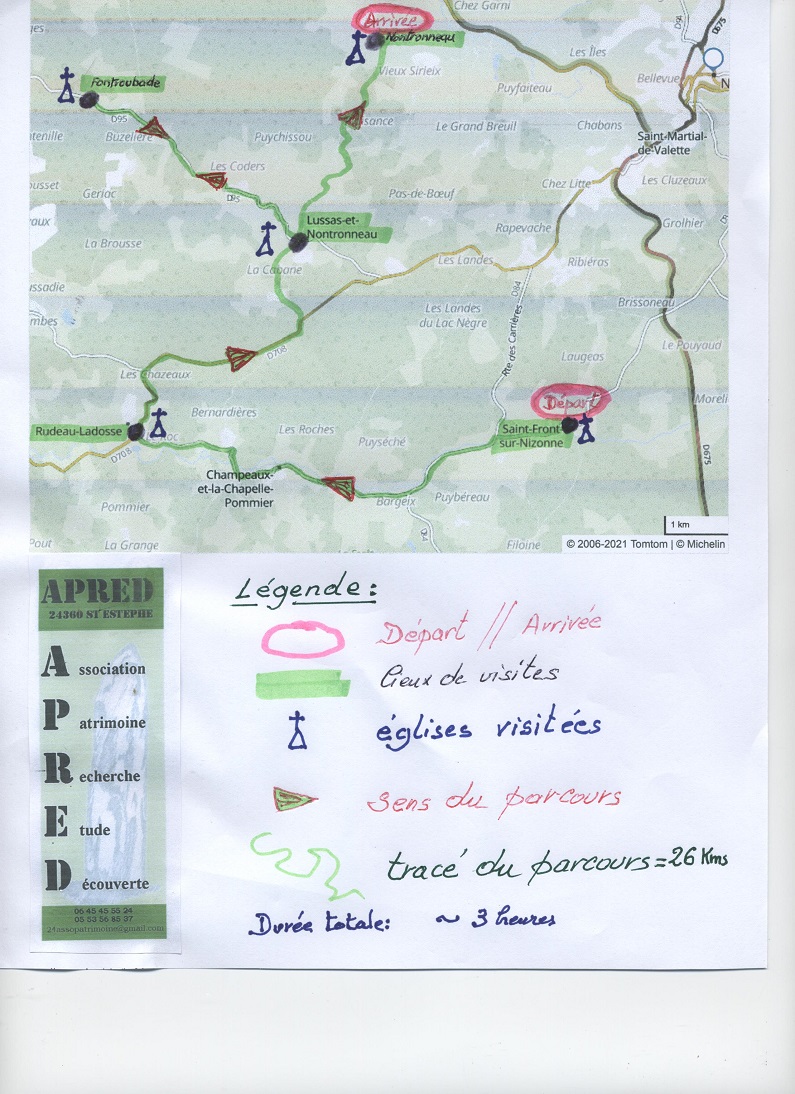 Chez Garni
Arrivée
Nontronneau
D675
Les Îles
Vieux Sirieix
Bellevue
N
Fontroubade
Puyfaiteau
D95
Buzelière
Puychissou
Le Grand Breuil
Chabans
Saint-Martial-
de-Valette
Les Coders
Chez Litte
Les Cluzeaux
Geriac
D95
Pas-de-Bœuf
Lussas-et-
Nontronneau
Rapevache
Grolhier
La Brousse
La Cabane
Les Landes
Ribiéras
D84
Brissoneau
Les Landes
du Lac Nègre
Rte des Carrières
Le Pouyaud
D708
Laugeas
Les Chazeaux
Départ
Bernardières
Rudeau-Ladosse
Les Roches
Puyséché
Saint-Front-
sur-Nizonne
D708
D675
Champeaux-
et-la-Chapelle-
Pommier
Bargeix
Puybéreau
Pommier
1 km
La Grange
Filoine
© 2006-2021 Tomtom | © Michelin
APRED
24360 ST ESTEPHE
Association
Patrimoine
Recherche
Etude
Découverte
24assopatrimoine@gmail.com
Légende :
Départ // Arrivée
lieux de visites
églises visitées
sens du parcours
tracé du parcours = 26 Kms
Durée totale: ~ 3 heures